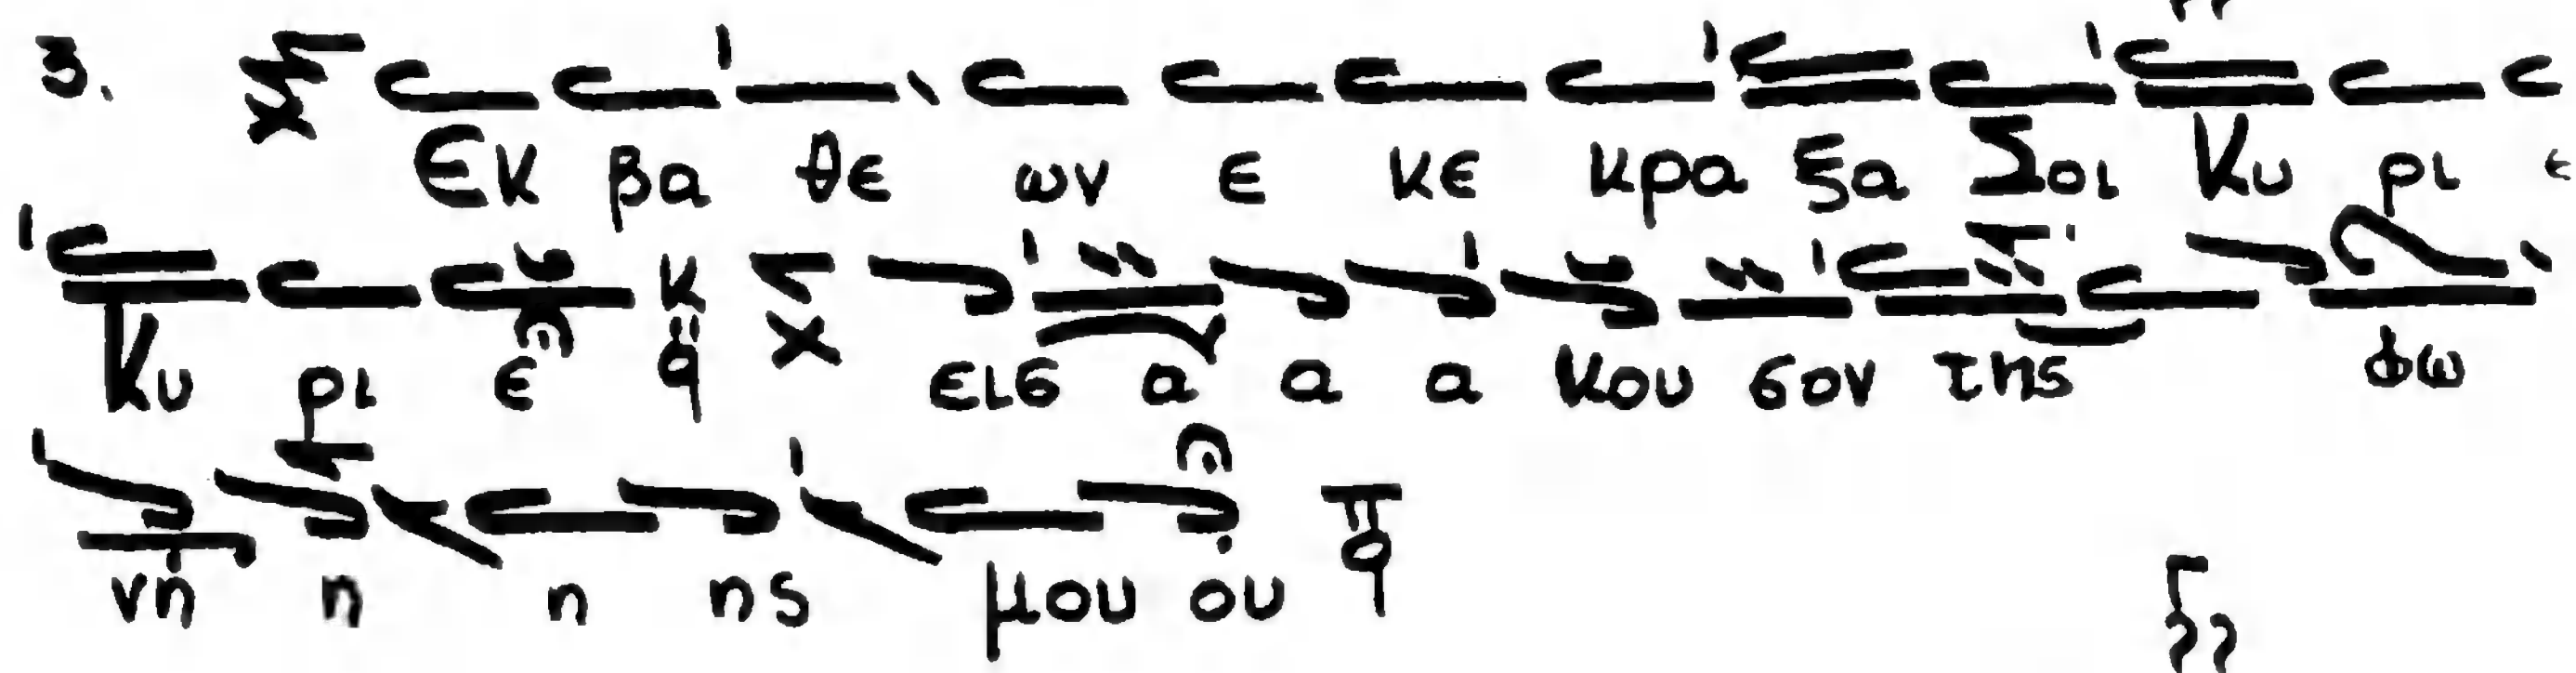 3. Εκ βα θε ων ε κε κρα ξα Σοι Κυ ρι ε
Κυ ρι ε κ̈ q̈ εις α α α κου σον της φω
νη η η ης μου ου π q